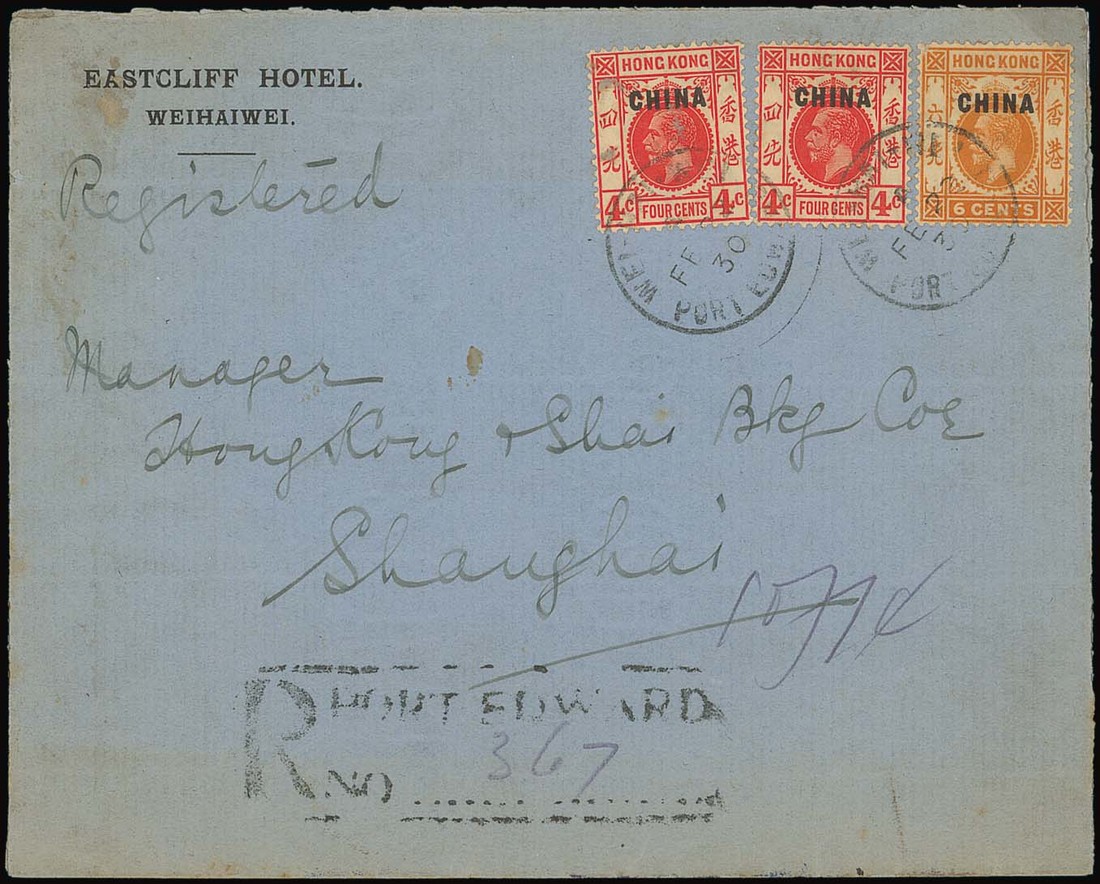 EASTCLIFF HOTEL.
WEIHAIWEI.
Registered
HONG KONG
CHINA
四先
香港
4c FOUR CENTS 4c
HONG KONG
CHINA
四先
香港
4c FOUR CENTS 4c
HONG KONG
CHINA
六先
香港
6 CENTS
FE
30
PORT EDW
FE
PORT
Manager
HongKong & Shai Bkg Coy
Shanghai
R PORT EDWARD
367
NO